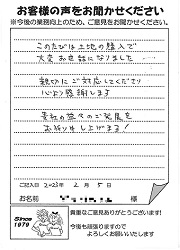 お客様の声をお聞かせください
※今後の業務向上のため、ご意見をお聞かせください。
このたびは土地の購入で
大変お世話になりました
親切にご対応してくださり
心より感謝します
貴社の益々のご発展を
お祈り申し上げます!
ご記入日 2023年 2月 5日
お名前 様
Since
1979
貴重なご意見ありがとうございます!
今後も頑張りますので
よろしくお願いいたします